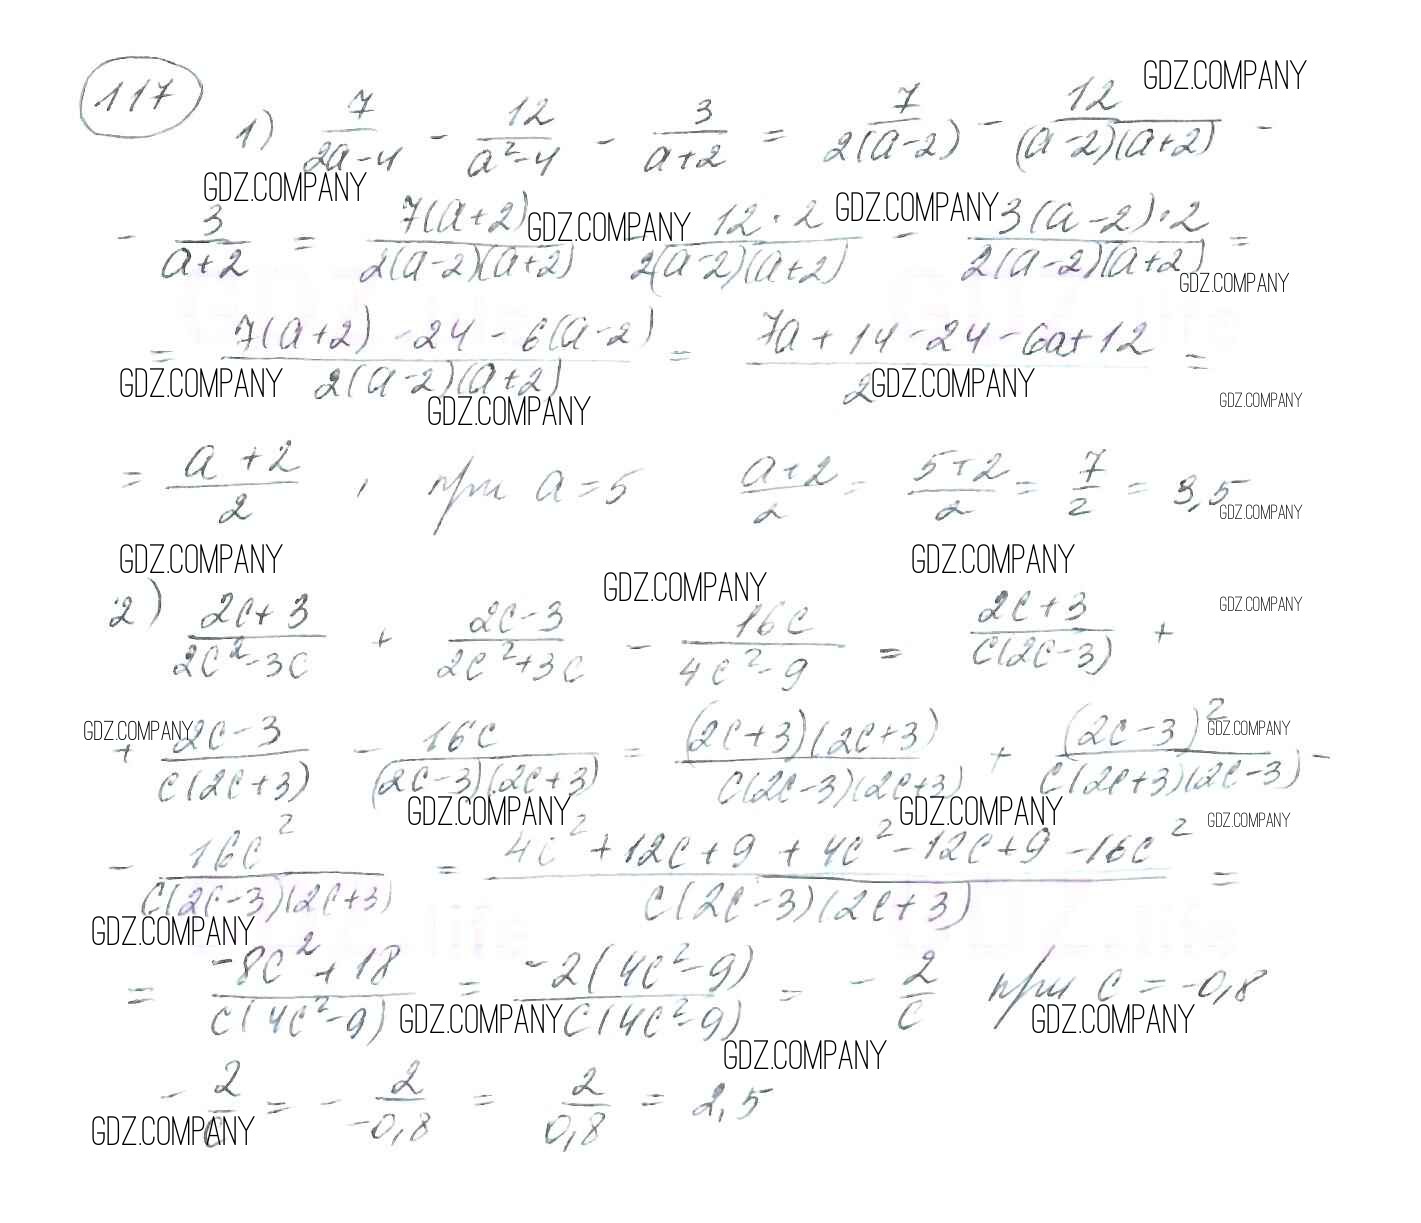 117
GDZ.COMPANY
1) 7/(2a-4) - 12/(a²-4) - 3/(a+2) = 7/(2(a-2)) - 12/((a-2)(a+2)) -
GDZ.COMPANY GDZ.COMPANY GDZ.COMPANY
- 3/(a+2) = 7(a+2)/(2(a-2)(a+2)) 12·2/(2(a-2)(a+2)) - 3(a-2)·2/(2(a-2)(a+2)) =
GDZ.COMPANY
= (7(a+2)-24-6(a-2))/(2(a-2)(a+2)) = (7a+14-24-6a+12)/(2 =
GDZ.COMPANY GDZ.COMPANY GDZ.COMPANY GDZ.COMPANY
= (a+2)/2, при a=5 (a+2)/2 = (5+2)/2 = 7/2 = 3,5
GDZ.COMPANY
GDZ.COMPANY GDZ.COMPANY GDZ.COMPANY GDZ.COMPANY
2) (2c+3)/(2c²-3c) + (2c-3)/(2c²+3c) - 16c/(4c²-9) = (2c+3)/(c(2c-3)) +
GDZ.COMPANY GDZ.COMPANY
+ (2c-3)/(c(2c+3)) - 16c/((2c-3)(2c+3)) = (2c+3)(2c+3)/(c(2c-3)(2c+3)) + (2c-3)²/(c(2c+3)(2c-3)) -
GDZ.COMPANY GDZ.COMPANY GDZ.COMPANY
- 16c²/(c(2c-3)(2c+3)) = (4c²+12c+9+4c²-12c+9-16c²)/(c(2c-3)(2c+3)) =
GDZ.COMPANY
= (-8c²+18)/(c(4c²-9)) = -2(4c²-9)/(c(4c²-9)) = - 2/c при c=-0,8
GDZ.COMPANY GDZ.COMPANY
GDZ.COMPANY
- 2/c = - 2/(-0,8) = 2/0,8 = 2,5
GDZ.COMPANY